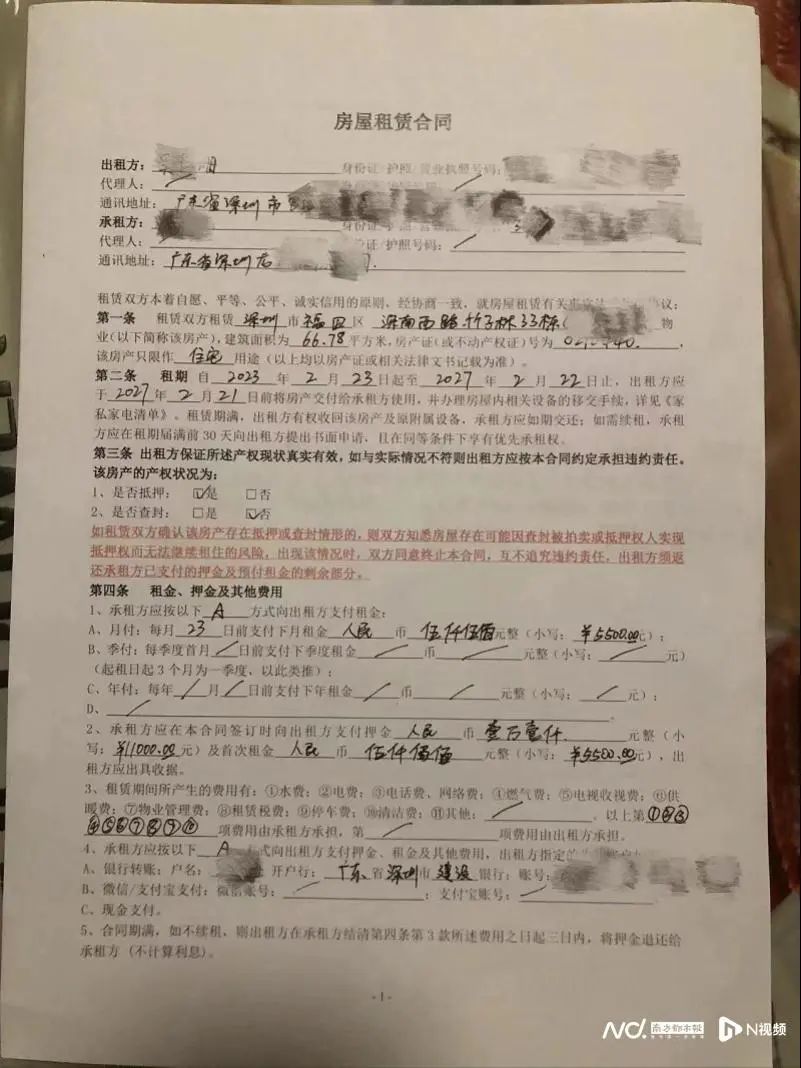 房屋租赁合同
出租方： 身份证/护照/营业执照号码：
代理人：
通讯地址： 广东省深圳市
承租方：
代理人： 证/护照号码：
通讯地址： 广东省深圳市
租赁双方本着自愿、平等、公平、诚实信用的原则、经协商一致，就房屋租赁有关 议：
第一条 租赁双方租赁 深圳 市 福田 区 深南西路竹子林33栋( 物
业(以下简称该房产)，建筑面积为 66.78 平方米，房产证(或不动产权证)号为 ，
该房产只限作 住宅 用途（以上均以房产证或相关法律文书记载为准）。
第二条 租期 自 2023 年 2 月 23 日起至 2027 年 2 月 22 日止，出租方应
于 2027 年 2 月 21 日前将房产交付给承租方使用，并办理房屋内相关设备的移交手续，详见《家
私家电清单》。租赁期满，出租方有权收回该房产及原附属设备，承租方应如期交还；如需续租，承租
方应在租期届满前 30 天向出租方提出书面申请，且在同等条件下享有优先承租权。
第三条 出租方保证所述产权现状真实有效，如与实际情况不符则出租方应按本合同约定承担违约责任。
该房产的产权状况为：
1、是否抵押： ☑是 □否
2、是否查封： □是 ☑否
如租赁双方确认该房产存在抵押或查封情形的，则双方知悉房屋存在可能因查封被拍卖或抵押权人实现
抵押权而无法继续租住的风险，出现该情况时，双方同意终止本合同，互不追究违约责任，出租方须返
还承租方已支付的押金及预付租金的剩余部分。
第四条 租金、押金及其他费用
1、承租方应按以下 A 方式向出租方支付租金：
A、月付：每月 23 日前支付下月租金 人民 币 伍仟伍佰 元整（小写： ¥5500.00 元）；
B、季付：每季度首月 / 日前支付下季度租金 / 币 / 元整（小写： / 元）
(起租日起 3 个月为一季度、以此类推)；
C、年付：每年 / 月 / 日前支付下年租金 / 币 / 元整（小写： / 元）；
D、 /
2、承租方应在本合同签订时向出租方支付押金 人民 币 壹万壹仟 元整（小
写： ¥11000.00 元）及首次租金 人民 币 伍仟伍佰 元整（小写： ¥5500.00 元），出
租方应出具收据。
3、租赁期间所产生的费用有：①水费；②电费；③电话费、网络费；④燃气费；⑤电视收视费；⑥供
暖费；⑦物业管理费；⑧租赁税费；⑨停车费；⑩清洁费；⑪其他： / 。以上第 ①②③
④⑤⑥⑦⑧⑨⑩ 项费用由承租方承担，第 / 项费用由出租方承担。
4、承租方应按以下 A 方式向出租方支付押金、租金及其他费用，出租方指定的
A、银行转账：户名： 开户行： 广东 省 深圳 市 建设 银行；账号：
B、微信/支付宝支付：微信账号： / ；支付宝账号： /
C、现金支付。
5、合同期满，如不续租，则出租方在承租方结清第四条第 3 款所述费用之日起三日内，将押金退还给
承租方（不计算利息）。
- 1 -
南方都市报 N视频